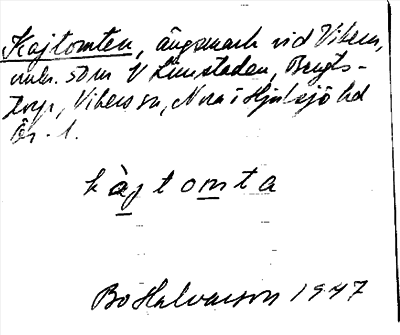 Kajtomten, ängsmark vid Vibern,
omkr. 50 m V Limstaden, Bengts-
torp, Vibers sn, Nora i Hjulsjö hd
Ör. l.
kajtomta
Bo Halvarson 1947